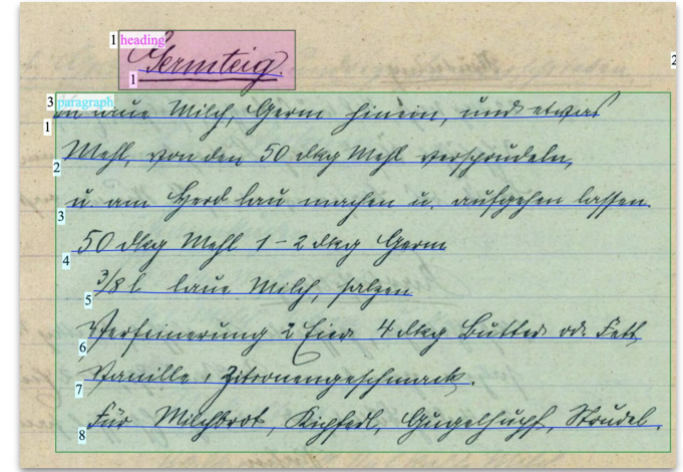 Germteig.
In laue Milch, Germ hinein, und etwas
Mehl, von den 50 dkg Mehl versprudeln,
u am Herd lau machen u. aufgehen lassen.
50 dkg Mehl 1-2 dkg Germ
3/8 l laue Milch, salzen
Verfeinerung 2 Eier 4 dkg Butter od. Fett
Vanille, Zitronengeschmack.
Für Milchbrot, Kipferl, Gugelhupf, Strudel.